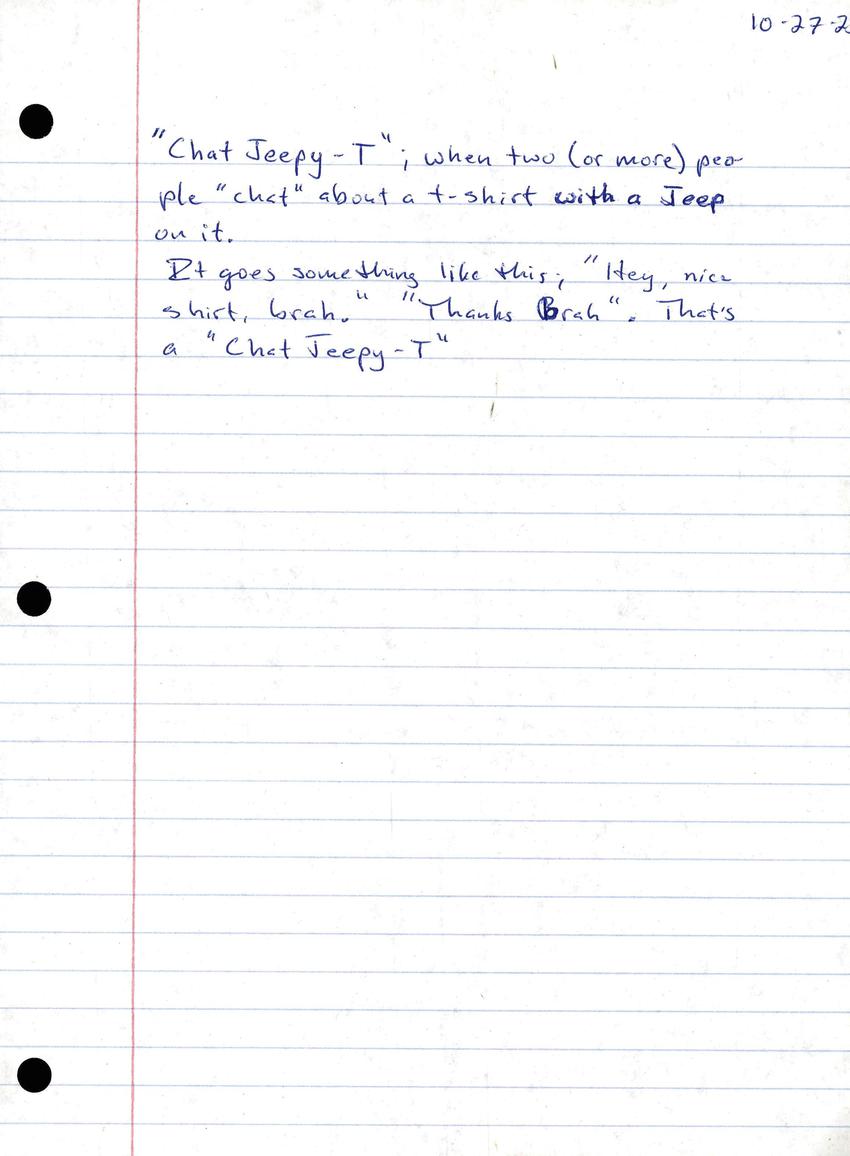 10-27-2
"Chat Jeepy-T"; when two (or more) peo-
ple "chat" about a t-shirt with a Jeep
on it.
It goes something like this; "Hey, nice
shirt, brah." "Thanks Brah". That's
a "Chat Jeepy-T"